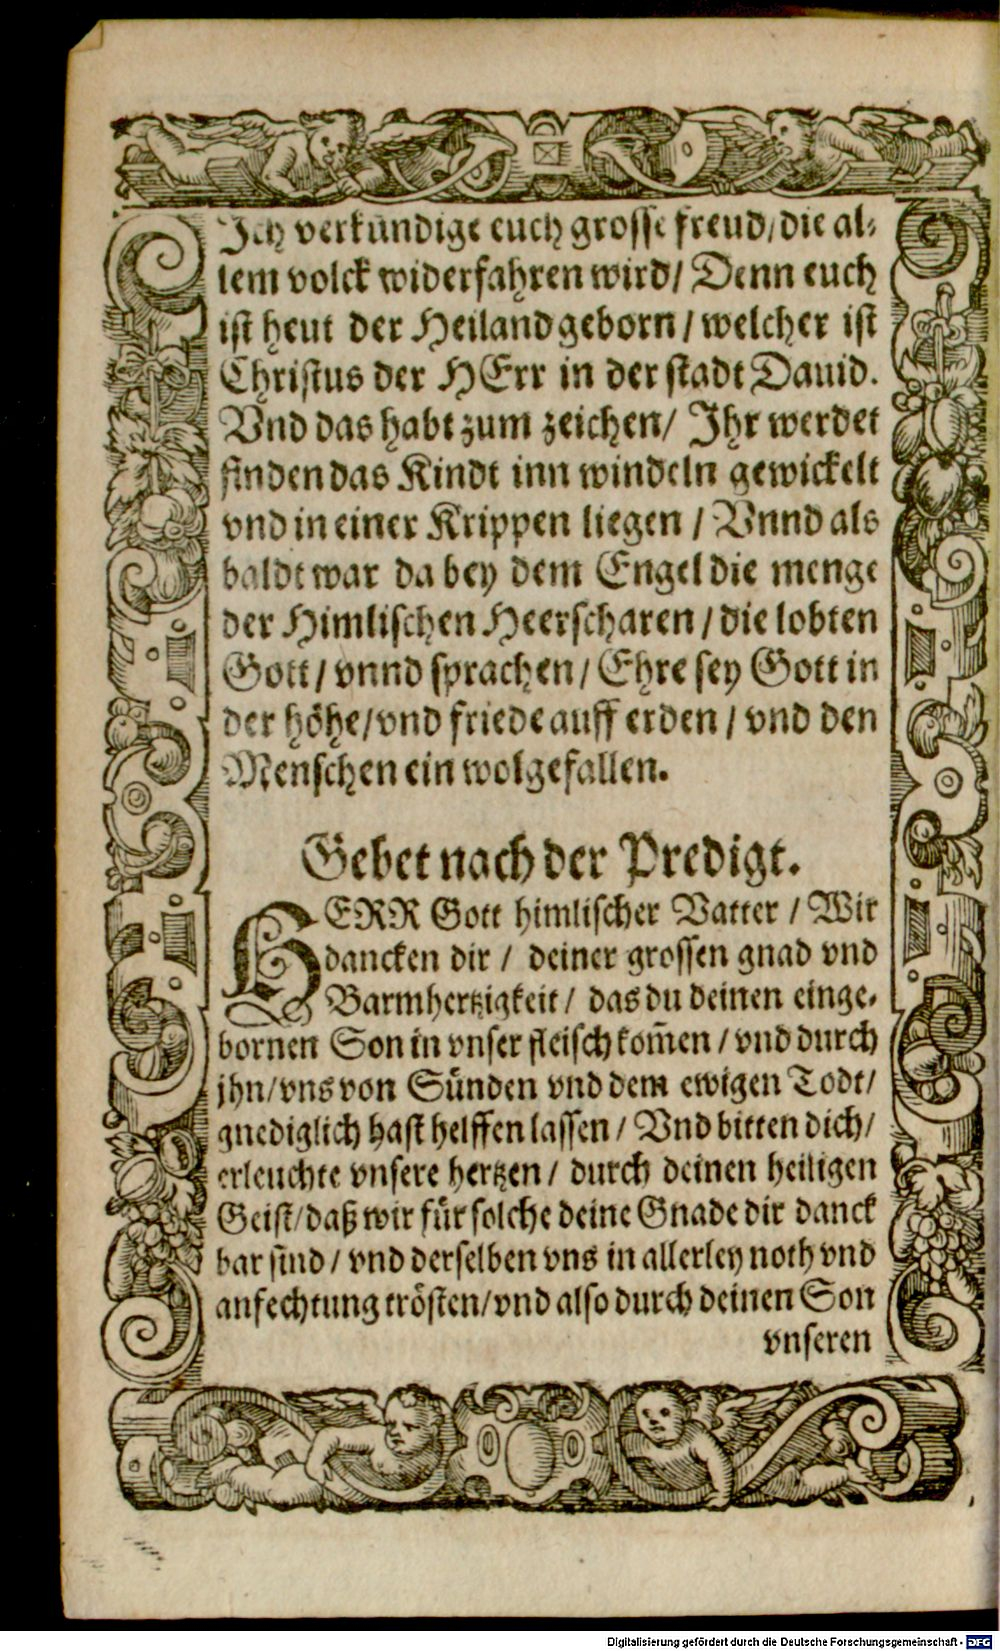 Ich verkündige euch grosse freud/ die al-
lem volck widerfahren wird/ Denn euch
ist heut der Heiland geborn / welcher ist
Christus der HErr in der stadt Dauid.
Vnd das habt zum zeichen/ Ihr werdet
finden das Kindt inn windeln gewickelt
vnd in einer Krippen liegen / Vnnd als
baldt war da bey dem Engel die menge
der Himlischen Heerscharen / die lobten
Gott / vnnd sprachen / Ehre sey Gott in
der höhe/vnd friede auff erden / vnd den
Menschen ein wolgefallen.
Gebet nach der Predigt.
HERR Gott himlischer Vatter / Wir
dancken dir / deiner grossen gnad vnd
Barmhertzigkeit / das du deinen einge-
bornen Son in vnser fleisch kom̃en / vnd durch
jhn/vns von Sünden vnd dem ewigen Todt/
gnediglich hast helffen lassen / Vnd bitten dich/
erleuchte vnsere hertzen / durch deinen heiligen
Geist/daß wir für solche deine Gnade dir danck
bar sind / vnd derselben vns in allerley noth vnd
anfechtung trösten/vnd also durch deinen Son
vnseren
Digitalisierung gefördert durch die Deutsche Forschungsgemeinschaft - DFG